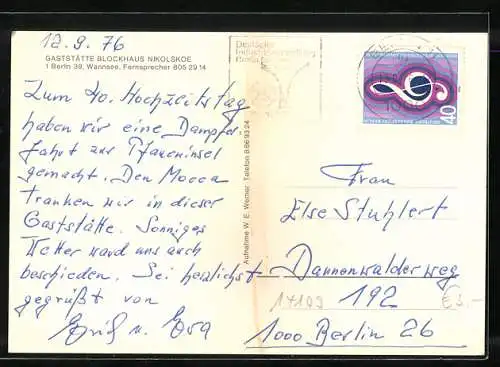 12.9.76
GASTSTÄTTE BLOCKHAUS NIKOLSKOE
1 Berlin 39, Wannsee, Fernsprecher 805 29 14
Zum 40. Hochzeitstag
haben wir eine Dampfer-
fahrt zur Pfaueninsel
gemacht. Den Mocca
tranken wir in dieser
Gaststätte. Sonniges
Wetter ward uns auch
beschieden. Sei herzlichst
gegrüßt von
Erich u. Eva
Aufnahme W. E. Werner · Telefon 8 86 93 24
Deutsche
40
Frau
Else Stuhlert
Dannenwalderweg
192
1000 Berlin 26
17109
€3.-